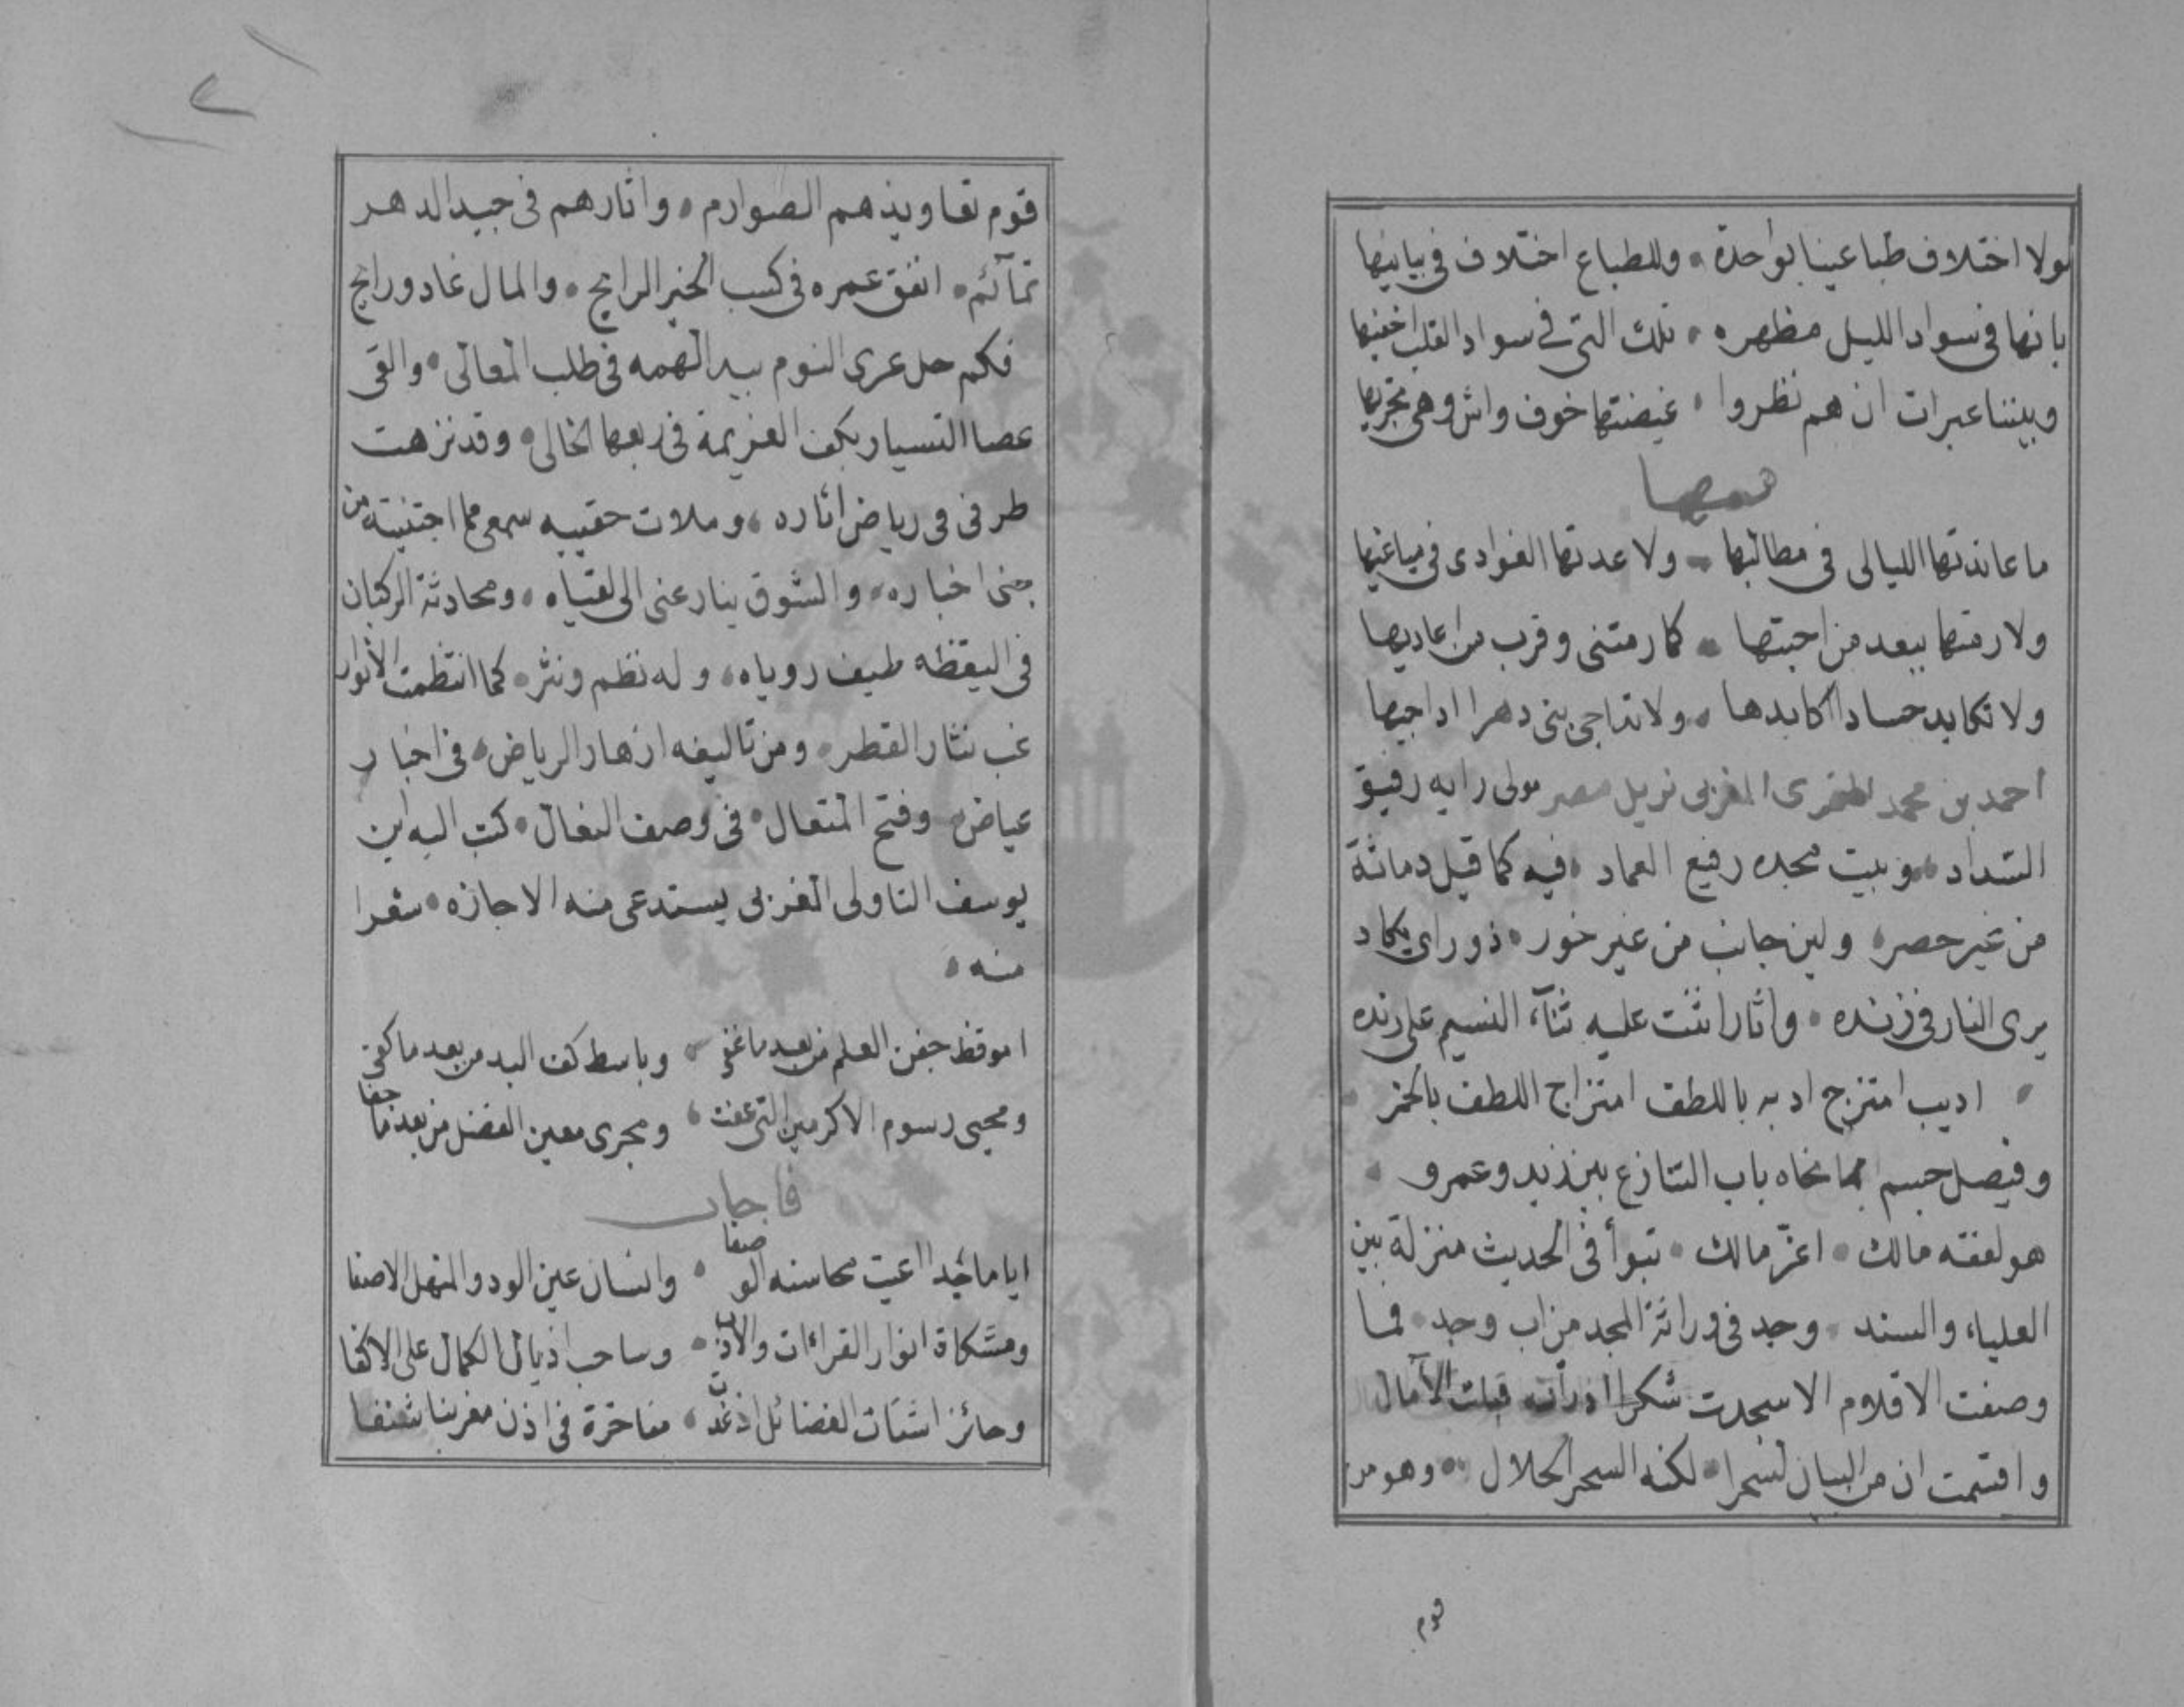 ولا اختلاف طباعينا بواحدة وللطباع اختلاف في بيانيها
بانها في سواد الليل مظهره تلك التي في سواد القلب اخفيها
وبيننا عبرات ان هم نظروا غيضتها خوف واش وهي تجريها
ما عاندتها الليالي في مطالبها ولا عدتها الغوادى في مباغيها
ولا رمتها ببعد من احبتها كما رمتنى وقرب من اعاديها
ولا تكابد حسادا اكابدها ولا تداجى بنى دهرا اداجيها
احمد بن محمد المقرى المغربى نزيل مصر مولى رايه رفيق
السداد وبيت مجده رفيع العماد فيه كما قيل دماثة
من غير حصر ولين جانب من غير خور ذو راى يكاد
يرى النار في زنده واثار اثنت عليه ثناء النسيم على رنده
اديب امتزج ادبه باللطف امتزاج اللطف بالخمر
وفيصل حسم بما نحاه باب التنازع بين زيد وعمرو
هو لفقه مالك اعز مالك تبوأ فى الحديث منزلة بين
العلياء والسند وجد فى وراثة المجد من اب وجد فما
وصفت الاقلام الا سجدت شكرا اذ رأته قبلت الآمال
واقسمت ان من البيان لسحرا لكنه السحر الحلال وهو من
قوم
٢
قوم تعاويذهم الصوارم واثارهم فى جيد الدهر
تمآئم انفق عمره فى كسب الخير الرابح والمال غاد ورايح
فكم حل عرى النوم بيد الهمه فى طلب المعالى والقى
عصا التسيار بكف العزيمة فى ربعها الخالى وقد نزهت
طرفى فى رياض اثاره وملات حقيبه سمعى مما اجتنيته من
جنى اخباره والشوق ينازعنى الى لقياه ومحادثة الركبان
فى اليقظه طيف روياه وله نظم ونثر كما انتظمت الانوار
غب نثار القطر ومن تاليفه ازهار الرياض فى اخبار
عياض وفتح المتعال فى وصف النعال كتب اليه ابن
يوسف التاولى المغربى يستدعى منه الاجازه شعرا
منه
اموقظ جفن العلم من بعد ما غفى وباسط كف البد من بعد ما كفى
ومحيى رسوم الاكرمين التى عفت ومجرى معين الفضل من بعد ما جفا
فاجاب
ايا ماجدا اعيت محاسنه الوصفا وانسان عين الود والمنهل الاصفا
ومشكاة انوار القراءات والادب وساحب اذيال الكمال على الاكفا
وحائز اشتات الفضائل اذ غدت مفاخرة فى اذن مغربنا شنفا